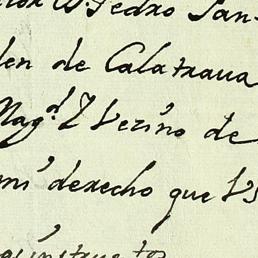 D. Pedro San-
den de Calatraua
Mag.d Vezino de
mi derecho que Vs